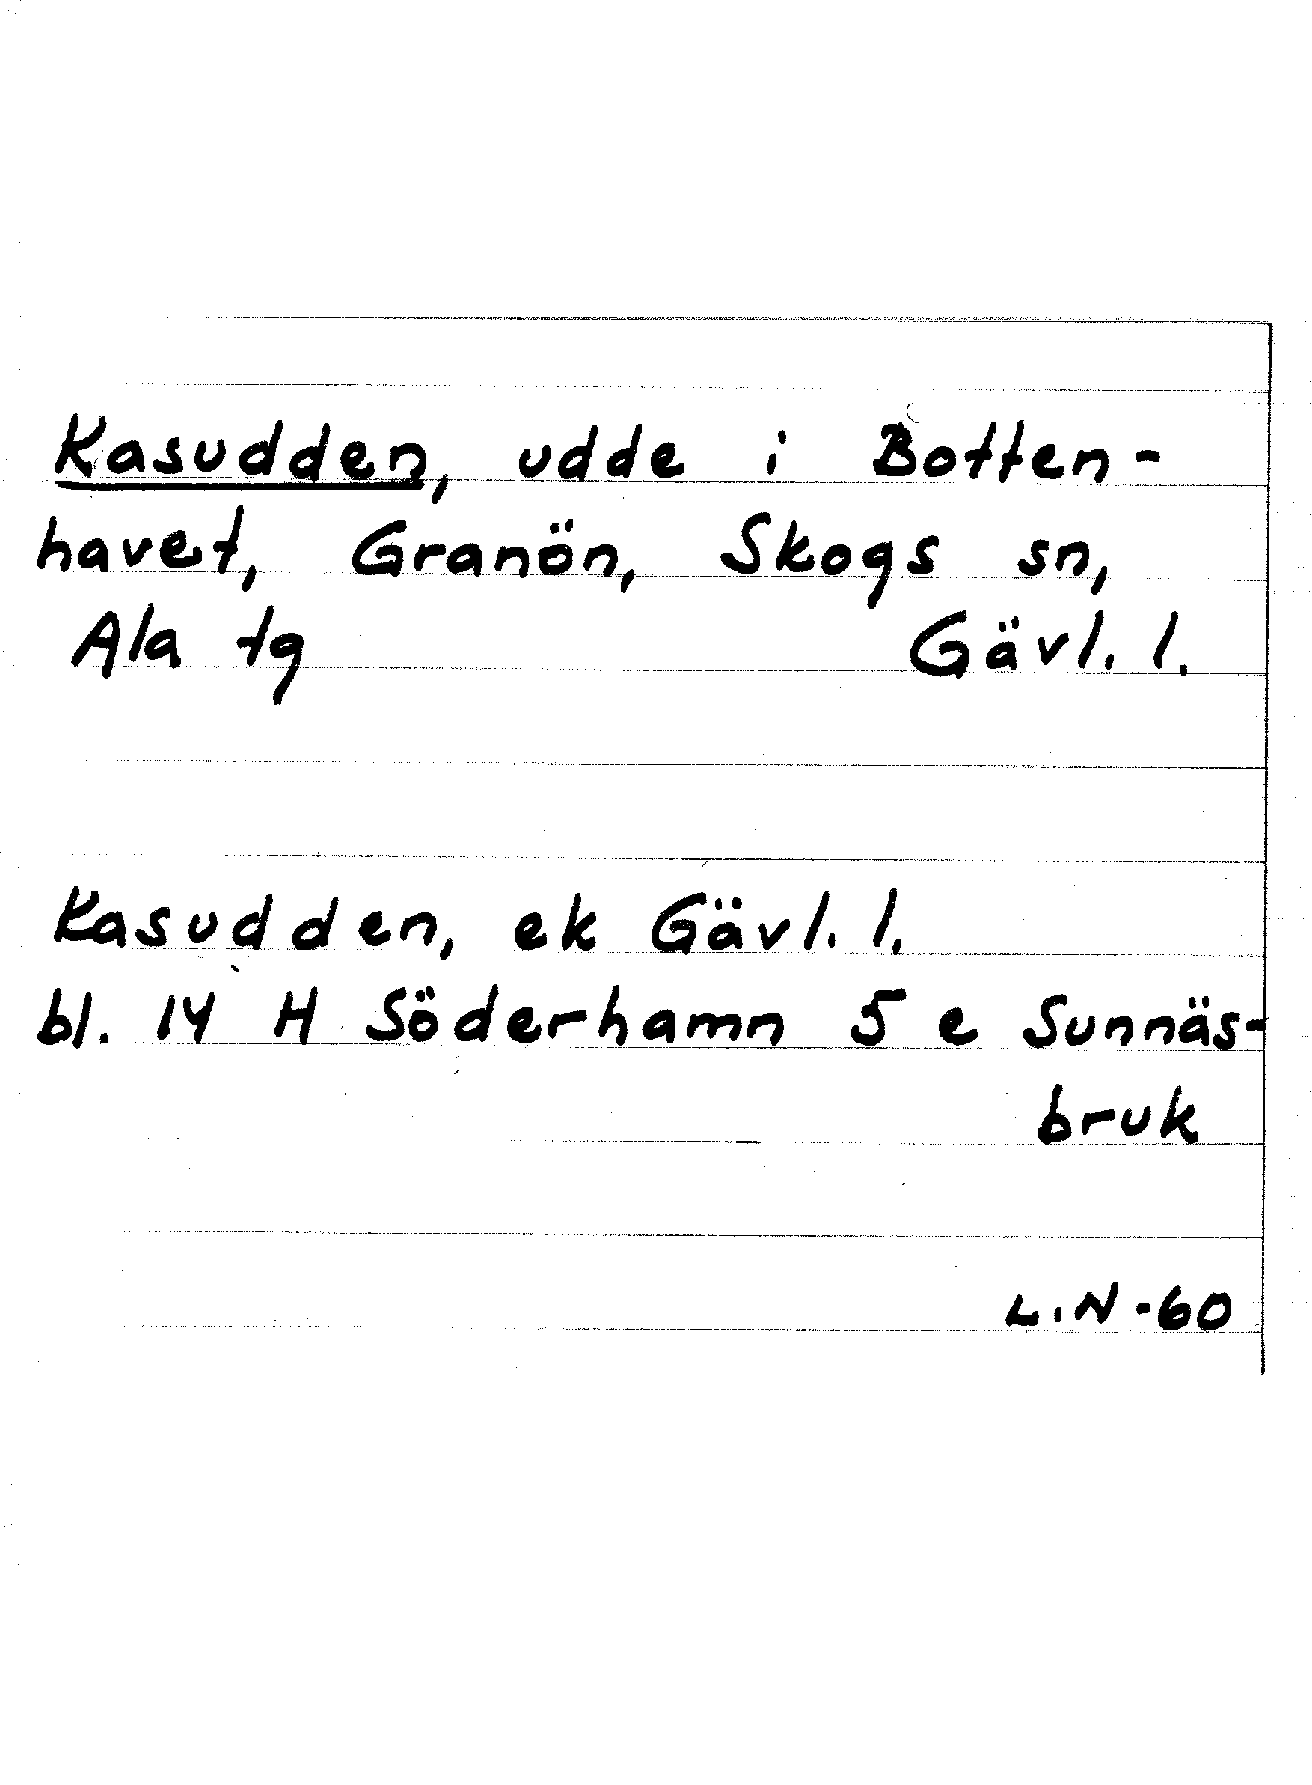 Kasudden, udde i Botten-
havet, Granön, Skogs sn,
Ala tg Gävl. l.
Kasudden, ek Gävl. l.
bl. 14 H Söderhamn 5 e Sunnäs-
bruk
L.N -60